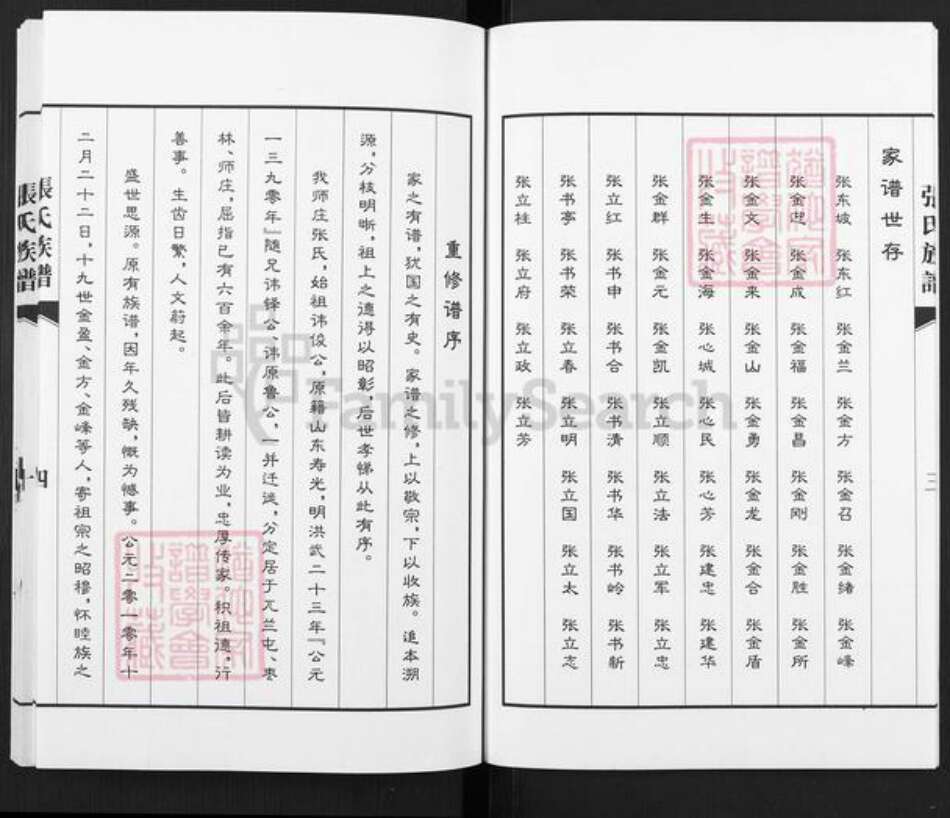 张氏族谱
三
家谱世存
张东坡 张东红 张金兰 张金方 张金召 张金绪 张金峰
张金 张金成 张金福 张金昌 张金刚 张金胜 张金所
张金文 张金来 张金山 张金勇 张金龙 张金合 张金盾
张金生 张金海 张心城 张心民 张心芳 张建忠 张建华
张金群 张金元 张金凯 张立顺 张立洁 张立军 张立忠
张立红 张书申 张书合 张书清 张书华 张书岭 张书新
张书亭 张书荣 张立春 张立明 张立国 张立太 张立志
张立柱 张立府 张立政 张立芳
重修谱序
家之有谱,犹国之有史。家谱之修,上以敬宗,下以收族。追本溯
源,分枝明晰,祖上之德得以昭彰,后世孝悌从此有序。
我师庄张氏,始祖讳俊公,原籍山东寿光,明洪武二十三年『公元
一三九零年』随兄讳铎公、讳原鲁公,一并迁淡,分定居于兀兰屯、枣
林、师庄,屈指已有六百余年。此后皆耕读为业,忠厚传家。积祖德,行
善事。生齿日繁,人文蔚起。
盛世思源。原有族谱,因年久残缺,慨为憾事。公元二零一零年十
二月二十二日,十九世金盈、金方、金峰等人,寄祖宗之昭穆,怀睦族之
張氏族譜
四
張氏族譜
FamilySearch